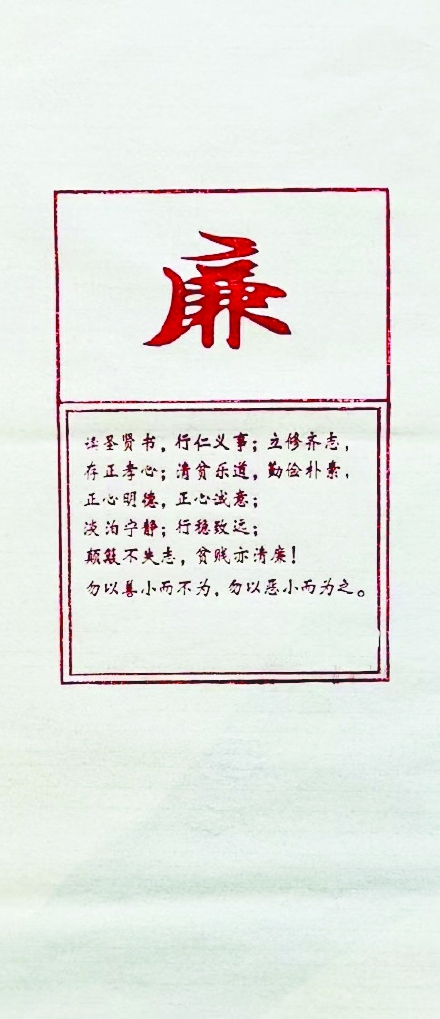 廉
读圣贤书，行仁义事；立修齐志，
存正孝心；清贫乐道，勤俭朴素，
正心明德，正心诚意；
淡泊宁静；行稳致远；
颠簸不失志，贫贱亦清廉！
勿以善小而不为，勿以恶小而为之。